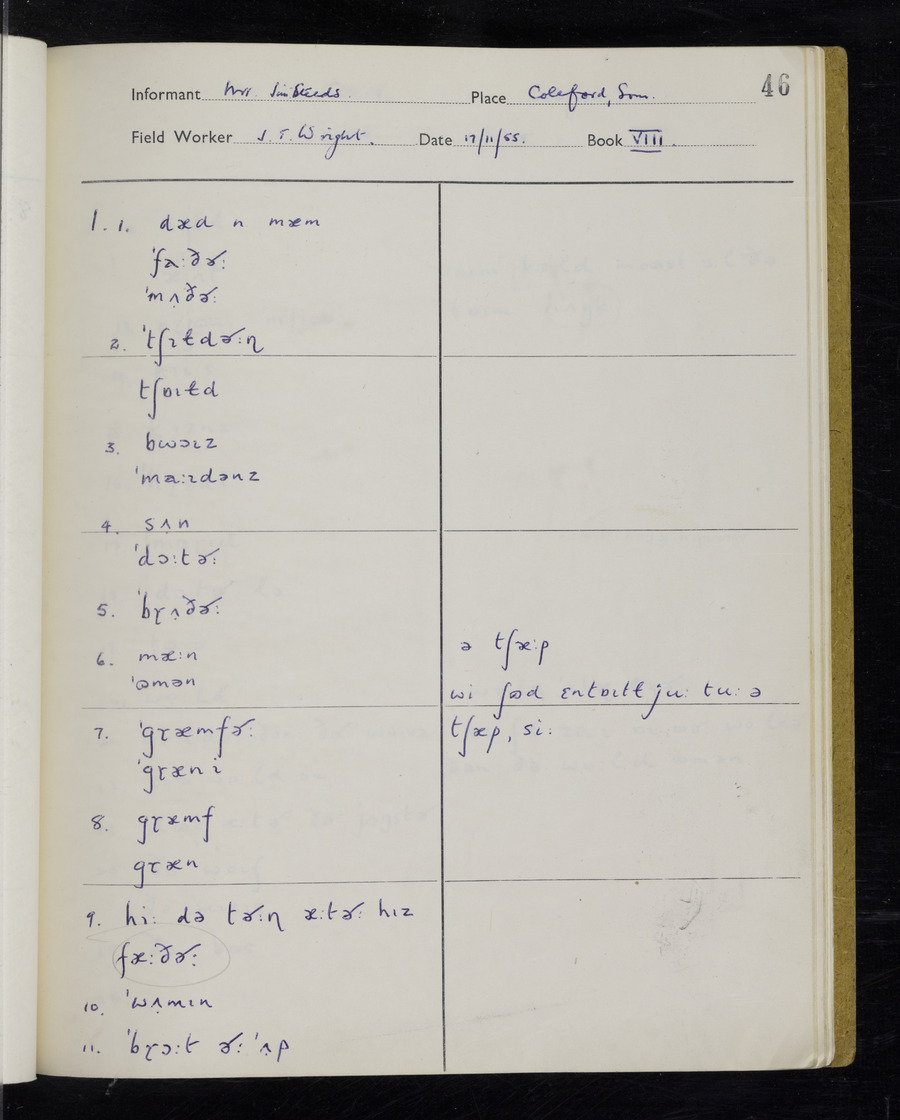 46
Informant Mrs. Place Coleford, Som.
Field Worker J. T. Wright. Date 17/11/55. Book VIII.
1. 1. dæd n mæm
ˈfa:ðɚ:
ˈmʌ̣ðɚ:
2. ˈtʃɪɫdɚ:ɳ
tʃɒɪɫd
3. bwɔɪz
ˈma:ɪdənz
4. sʌn
ˈdɔ:tɚ:
5. ˈbɽʌ̣ðɚ:
6. mæ:n
ˈɷmən
7. ˈgɽæmfɚ:
ˈgɽæni
8. gɽæmf
gɽæn
9. hi: də tɚ:ɳ æ:tɚ: hɪz
fæ:ðɚ:
10. ˈwʌ̣mɪn
11. ˈbɽɔ:t ɚ: ˈʌ̣p
ə tʃæ:p
wi ʃɷd ju: tu: ə
tʃæp, si: